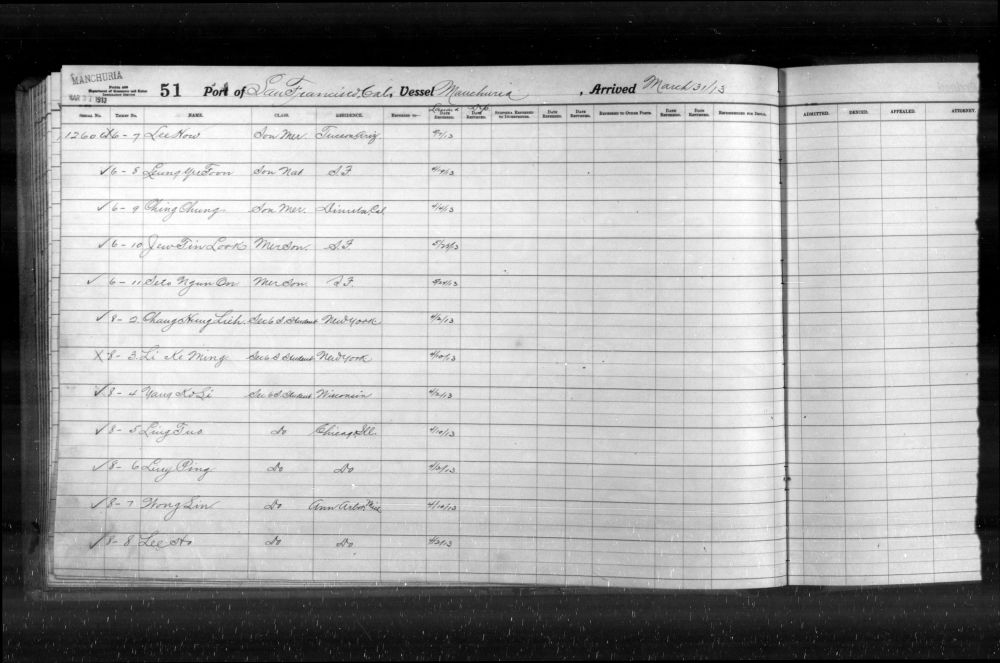 MANCHURIA
51 Port of San Francisco, Cal., Vessel Manchuria, Arrived March 31/13
SERIAL NO. TICKET NO. NAME. CLASS. RESIDENCE. REFERRED TO— DATE REFERRED. DATE RETURNED. DATE REFERRED. DATE RETURNED. REFERRED TO OTHER PORTS. DATE REFERRED. DATE RETURNED. ADMITTED. DENIED. APPEALED. ATTORNEY.
12606 6-7 Lee How Son Mer. Tucson Ariz
✓ 6-8 Leung Yee Foon Son Nat S.F. 4/4/13
✓ 6-9 Ching Chung Son Mer. Dinuba Cal 4/4/13
✓ 6-10 Jew Tin Look Mer Son. S.F.
✓ 6-11 Seto Ngun On Mer Son. S.F.
✓ 8-2 Chang Hung Lieh Sec 6 S. Student New York 4/2/13
X 8-3 Li Ke Ming Sec 6 S Student New York 4/10/13
✓ 8-4 Yang Ko Li Sec 6 S. Student Wisconsin 4/2/13
✓ 8-5 Ling Tuo Do Chicago Ill. 4/10/13
✓ 8-6 Ling Ping Do Do 4/2/13
✓ 8-7 Wong Lin Do Ann Arbor Mich 4/10/13
✓ 8-8 Lee Ho Do Do 4/2/13